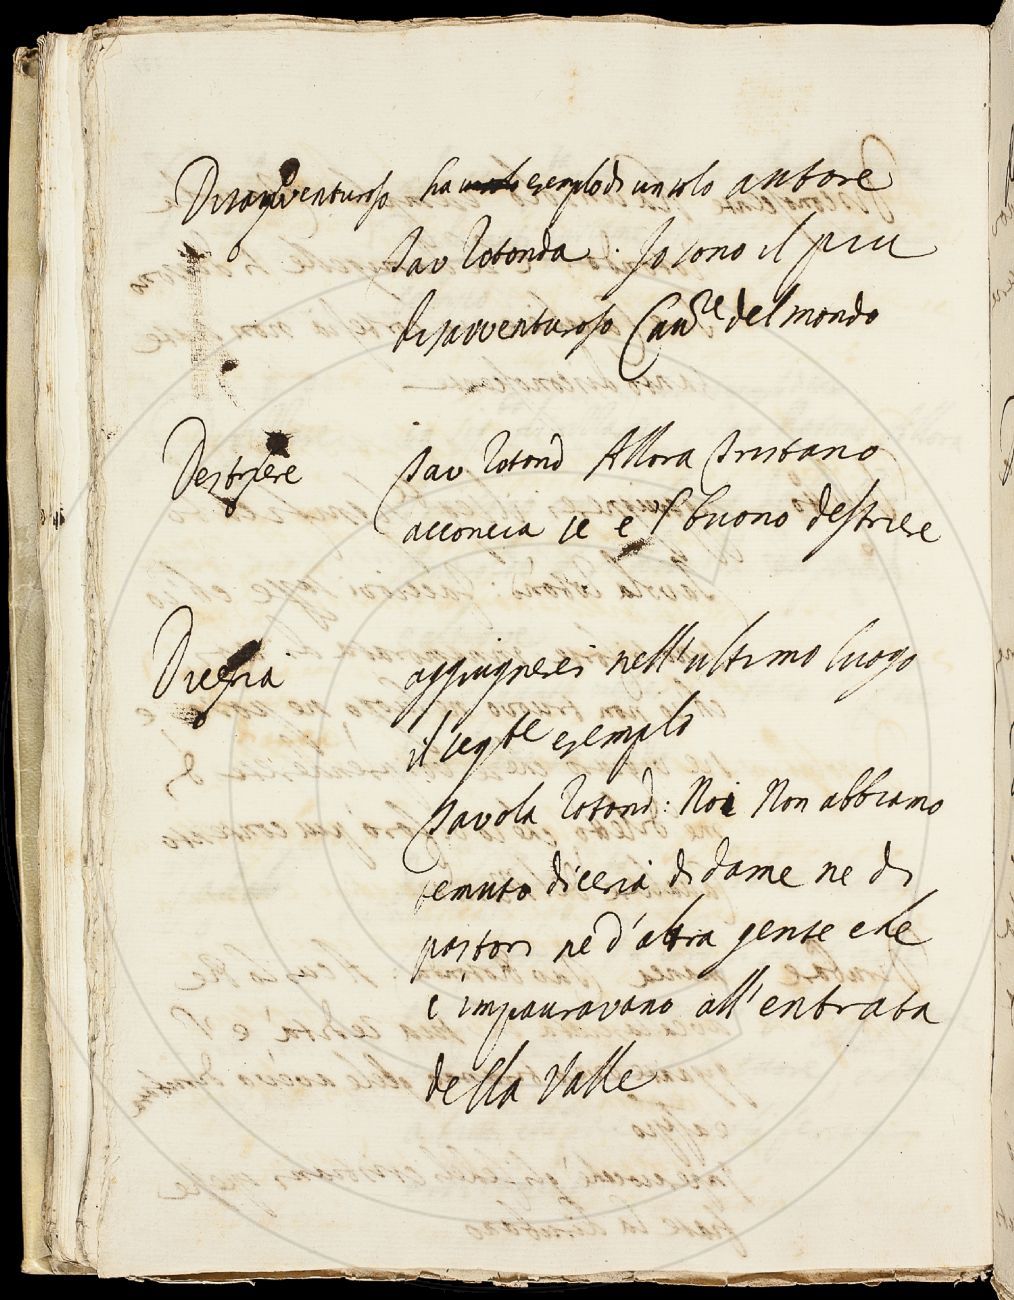 Disavventuroso ha esemplo di un solo autore
Tav Rotonda. Io sono il piu
disavventuroso Cau.re del mondo
Destriere Tav Rotond Allora Tristano
acconcia se e l buono destriere
Diceria aggiugnesi nell'ultimo luogo
il seg.te esemplo
Tavola Rotond: Noi Non abbiamo
temuto diceria di dame ne di
pastori ne d'altra gente che
c'impauravano all'entrata
della Valle